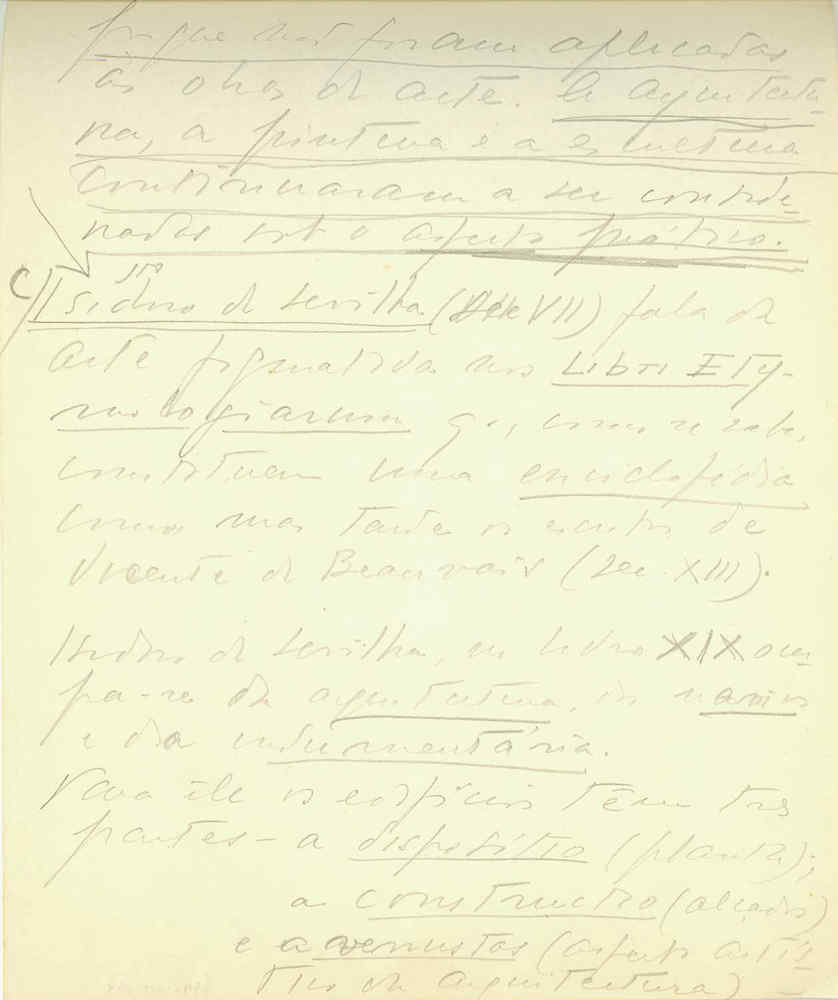 porque não foram aplicadas
às obras de arte. A arquitectu-
ra, a pintura e a escultura
continuaram a ser conside-
radas sob o aspecto prático.
c) Isidoro de Sevilha (Sec VII) fala da
arte figurativa nos Libri Ety-
mologiarum q, como se sabe,
constituem uma enciclopédia
como mais tarde os escritos de
Vicente de Beauvais (Sec. XIII).
Isidoro de Sevilha, no livro XIX ocu-
pa-se da arquitectura, dos navios
e da indumentária.
Para ele os edifícios têm três
partes - a dispositio (planta);
a constructio (alçado)
e a venustas (aspecto artís-
tico da arquitectura)